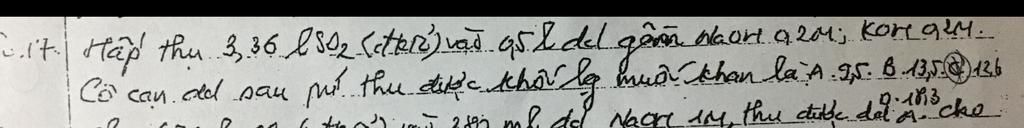 C.17. Hấp thu 3,36 l SO2 (đktc) vào 0,5 l dd gồm NaOH 0,2M; KOH 0,2M.
Cô cạn dd sau pứ thu được khối lg muối khan là A. 9,5. B 13,5 C 12,6
D. 18,3
ml dd NaOH 1M, thu được dd A. cho